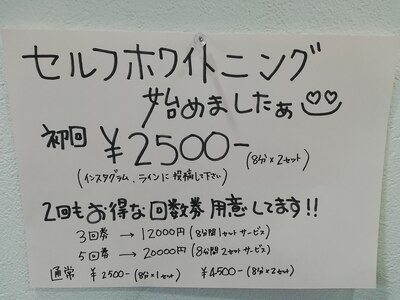 セルフホワイトニング
始めましたぁ
初回 ¥2500- (8分×2セット)
(インスタグラム、ラインに投稿して下さい)
2回もお得な回数券用意してます!!
3回券 → 12000円 (8分間1セットサービス)
5回券 → 20000円 (8分間2セットサービス)
通常 ¥2500- (8分×1セット) ¥4500- (8分×2セット)